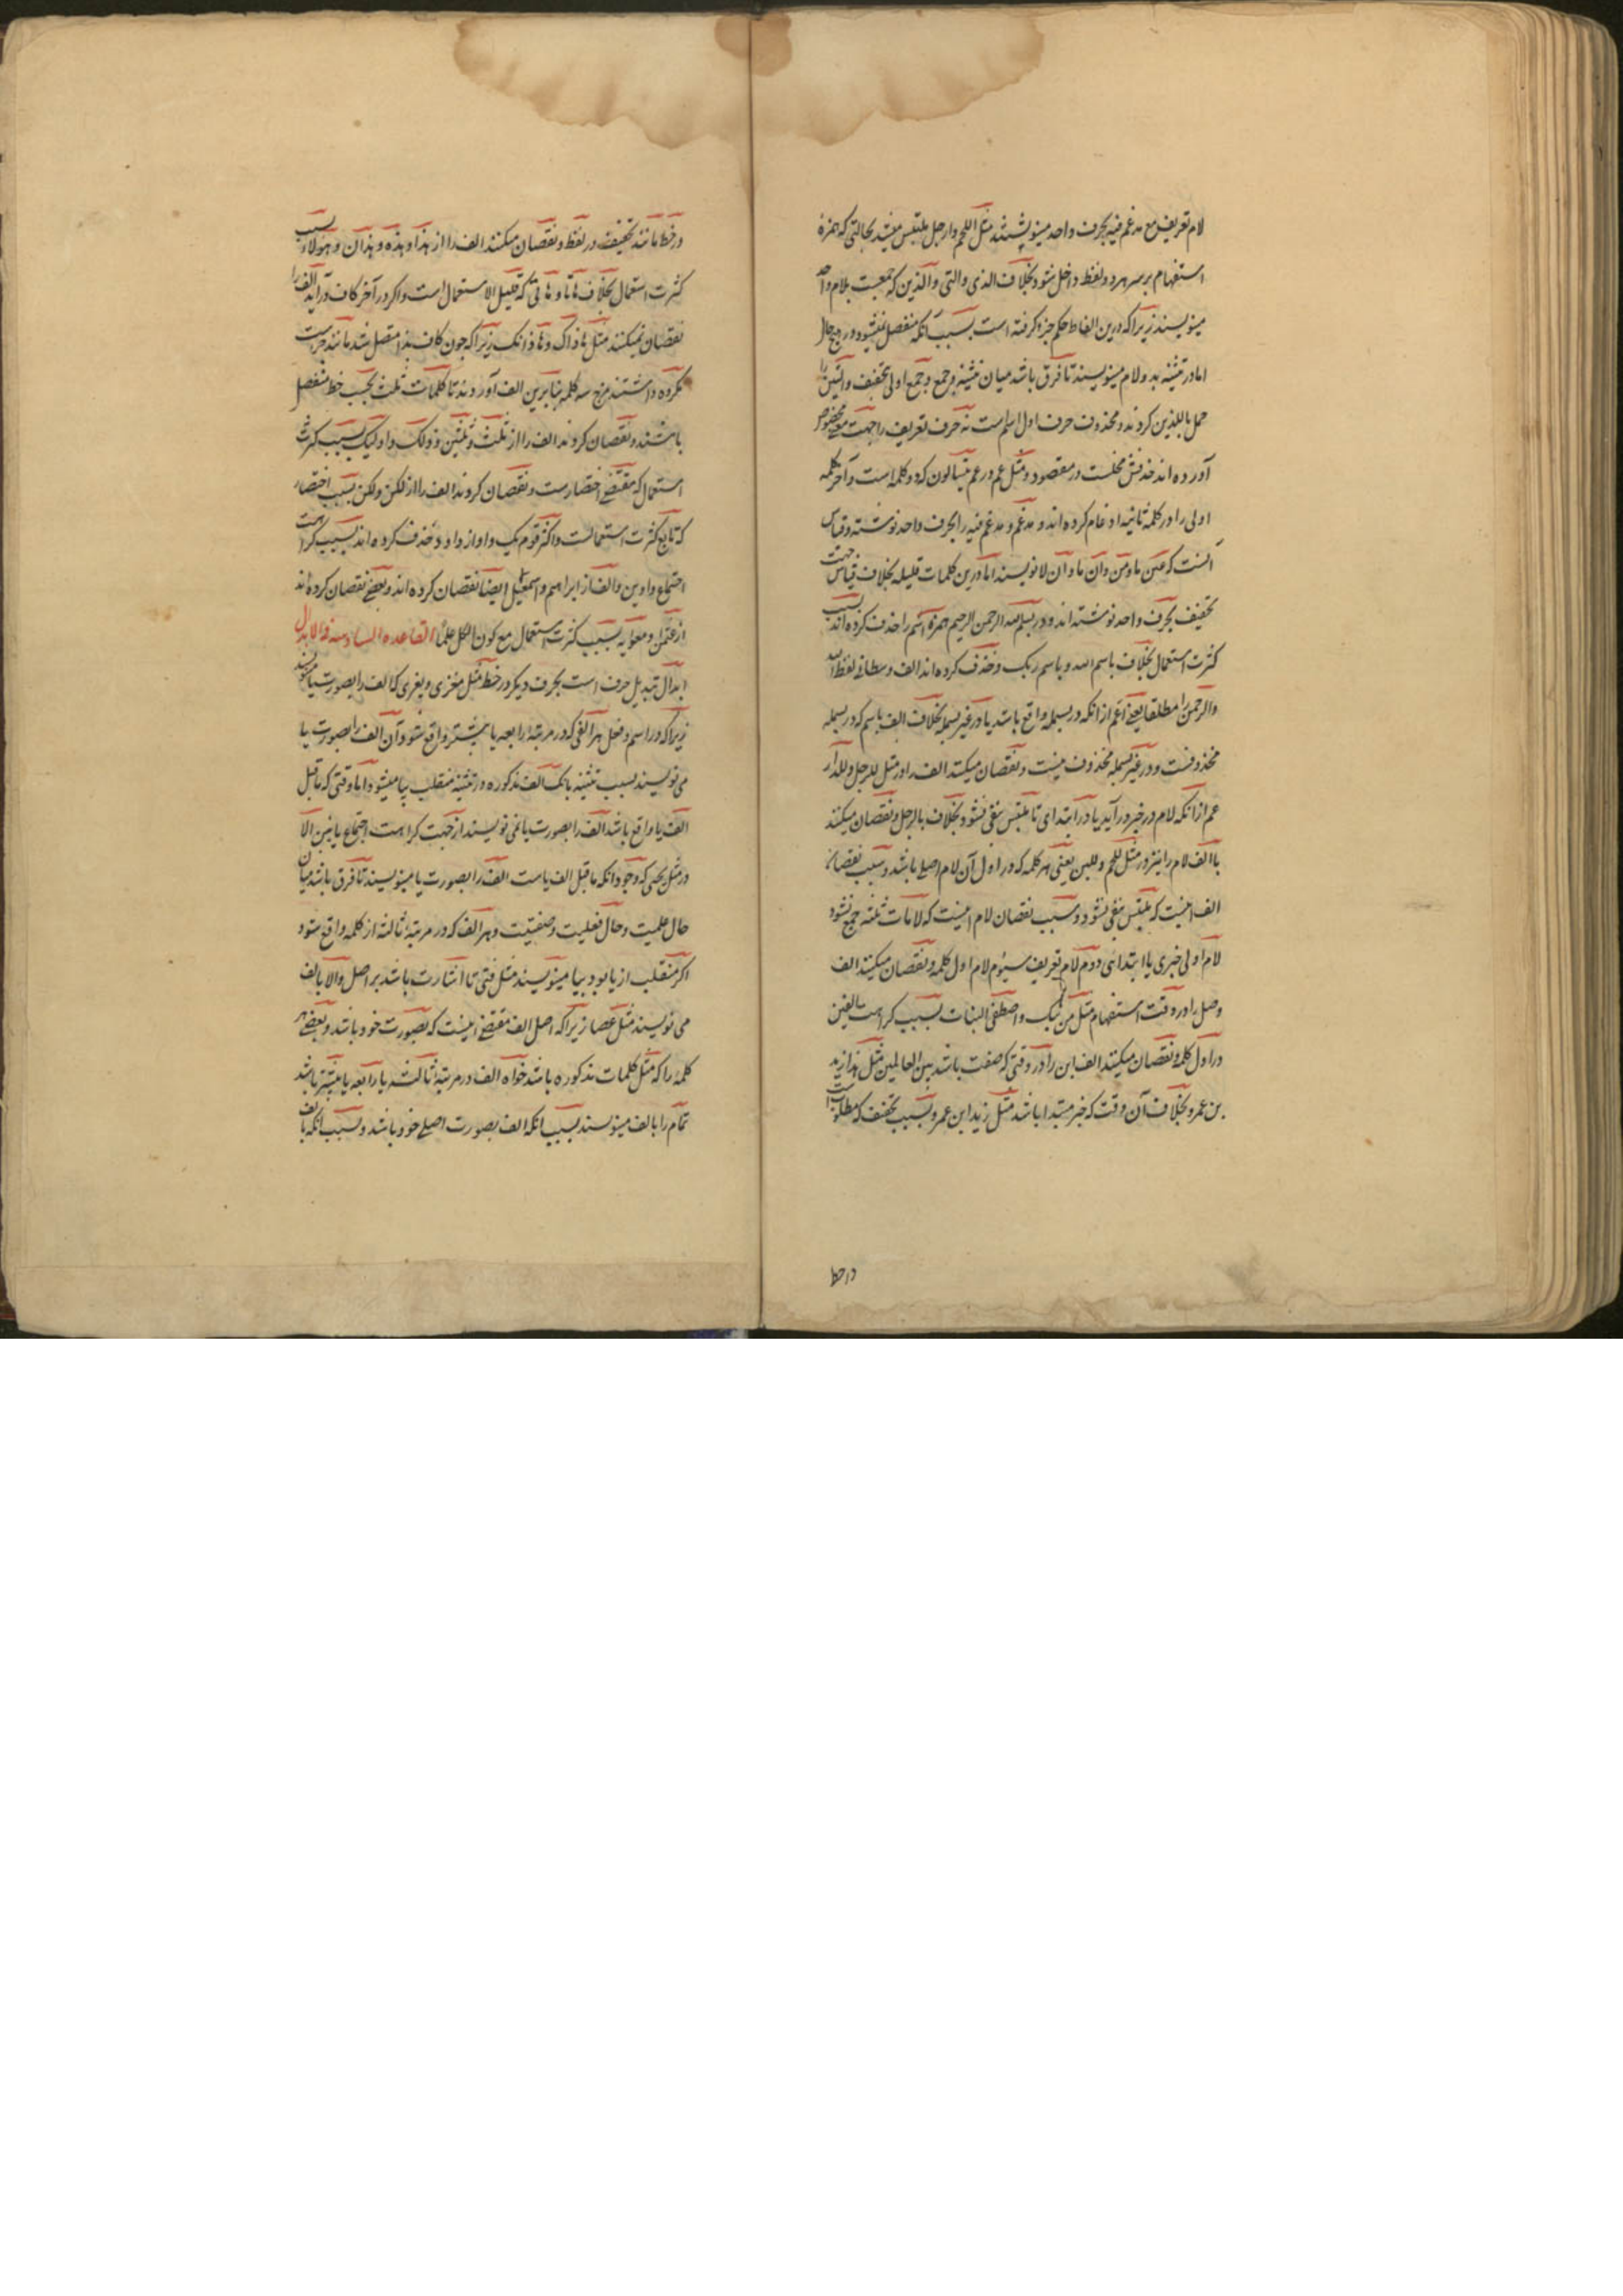 لام تعریف مع مدغم فیه بحرف واحد مینوشتند مثل اللحم وارجل ملتبس میشد بحالتی که همزهٔ
استفهام بر سر هر دو لفظ داخل شود بخلاف الذی والتی والذین که جمعیت بلام واحد
مینویسند زیرا که درین الفاظ حکم جزء گرفته است بسبب آنکه منفصل نمیشود در هیچ حال
اما در تثنیه بدو لام مینویسند تا فرق باشد میان تثنیه و جمع و جمع اولی بتخفیف والتین را
حمل باللذین کردند و محذوف حرف اول اسم است نه حرف تعریف را جهت معنی مخصوص
آورده اند حذفش مخلست در مقصود و مثل عم در عم یتسالون که دو کلمه است و آخر کلمه
اولی را در کلمه ثانیه ادغام کرده اند و مدغم و مدغم فیه را بحرف واحد نوشته و قیاس
آنست که عن ما و من و ان ما و ان لا نویسند اما درین کلمات قلیله بخلاف قیاس جهت
تخفیف بحرف واحد نوشته اند و در بسم الله الرحمن الرحیم همزه اسم را حذف کرده اند بسبب
کثرت استعمال بخلاف باسم الله و باسم ربک و حذف کرده اند الف وسطانی لفظ الله
والرحمن را مطلقا یعنی اعم از آنکه در بسمله واقع باشد یا در غیر بسمله بخلاف الف باسم که در بسمله
محذوفست و در غیر بسمله محذوف نیست و نقصان میکنند الف را در مثل للرجل و للدار
عم از آنکه لام در خبر درآید یا در ابتدای تا ملتبس بنفی نشود بخلاف بالرجل و نقصان میکنند
با الف لام را نیز در مثل للحم و للبن یعنی هر کلمه که در اول آن لام اصلی باشد و سبب نقصان
الف اینست که ملتبس بنفی نشود و سبب نقصان لام اینست که لامات ثلثه جمع نشود
لام اولی خبری یا ابتدائی دوم لام تعریف سیوم لام اول کلمه و نقصان میکنند الف
وصل را در وقت استفهام مثل من ابنک و اصطفی البنات بسبب کراهت الفین
در اول کلمه و نقصان میکنند الف ابن را در وقتی که صفت باشد بین العالمین مثل هذا زید
بن عمرو بخلاف آن وقت که خبر مبتدا باشد مثل زید ابن عمرو بسبب تخفیف که مطلوبست
در خط
در خط مانند تخفیف در لفظ و نقصان میکنند الف را از هذا و هذه و هذان و هؤلاء بسبب
کثرت استعمال بخلاف هاتا و هاتی که قلیل الاستعمال است و اگر در آخر کاف درآید الف را
نقصان نمیکنند مثل هاذاک و هاذانک زیرا که چون کاف بذا متصل شد مانند جزء است
مکروه داشتند مزج سه کلمه بنابرین الف آوردند تا کلمات ثلث بحسب خط منفصل
باشند و نقصان کردند الف را از ثلث و ثلثین و ذلک و اولیک بسبب کثرت
استعمال که مقتضی اختصارست و نقصان کردند الف را از لکن و لکن بسبب اختصار
که تابع کثرت استعمالست و اکثر قوم یک واو از داود حذف کرده اند بسبب کراهت
اجتماع واوین و الف از ابراهیم و اسمعیل ایضا نقصان کرده اند و بعضی نقصان کرده اند
از عثمن و معویه بسبب کثرت استعمال مع کون الکل علما القاعده السادسه فی الابدال
ابدال تبدیل حرف است بحرف دیگر در خط مثل مغزی و یغزی که الف را بصورت یا مینویسند
زیرا که در اسم و فعل هر الفی که در مرتبه رابعه یا بیشتر واقع شود آن الف را بصورت یا
می نویسند بسبب تثنیه بآنک الف مذکوره در تثنیه منقلب بیا میشود اما وقتی که ماقبل
الف یا واقع باشد الف را بصورت یا نمی نویسند از جهت کراهت اجتماع یائین الا
در مثل یحیی که وجود آنکه ماقبل الف یا است الف را بصورت یا مینویسند تا فرق باشد میان
حال علمیت و حال فعلیت و صفتیت و هر الف که در مرتبه ثالثه از کلمه واقع شود
اگر منقلب از یا بود بیا مینویسند مثل فتی تا اشارت باشد بر اصل والا بالف
می نویسند مثل عصا زیرا که اصل الف مقتضی اینست که بصورت خود باشد و بعضی هر
کلمه را که مثل کلمات مذکوره باشد خواه الف در مرتبه ثالثه یا رابعه یا بیشتر باشد
تمام را بالف مینویسند بسبب آنکه الف بصورت اصلی خود باشد و بسبب آنکه بالف